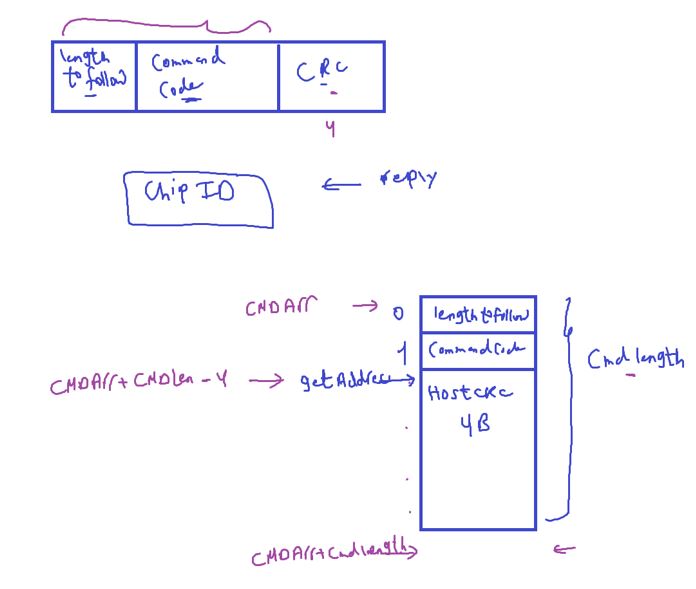 length
to follow
Command
Code
CRC
4
Chip ID
← reply
CMDArr → 0
length to follow
1
Command Code
CMDArr + CMDLen - 4 → getAddress →
HostCRC
4B
Cmd length
CMDArr + Cmd length →
←